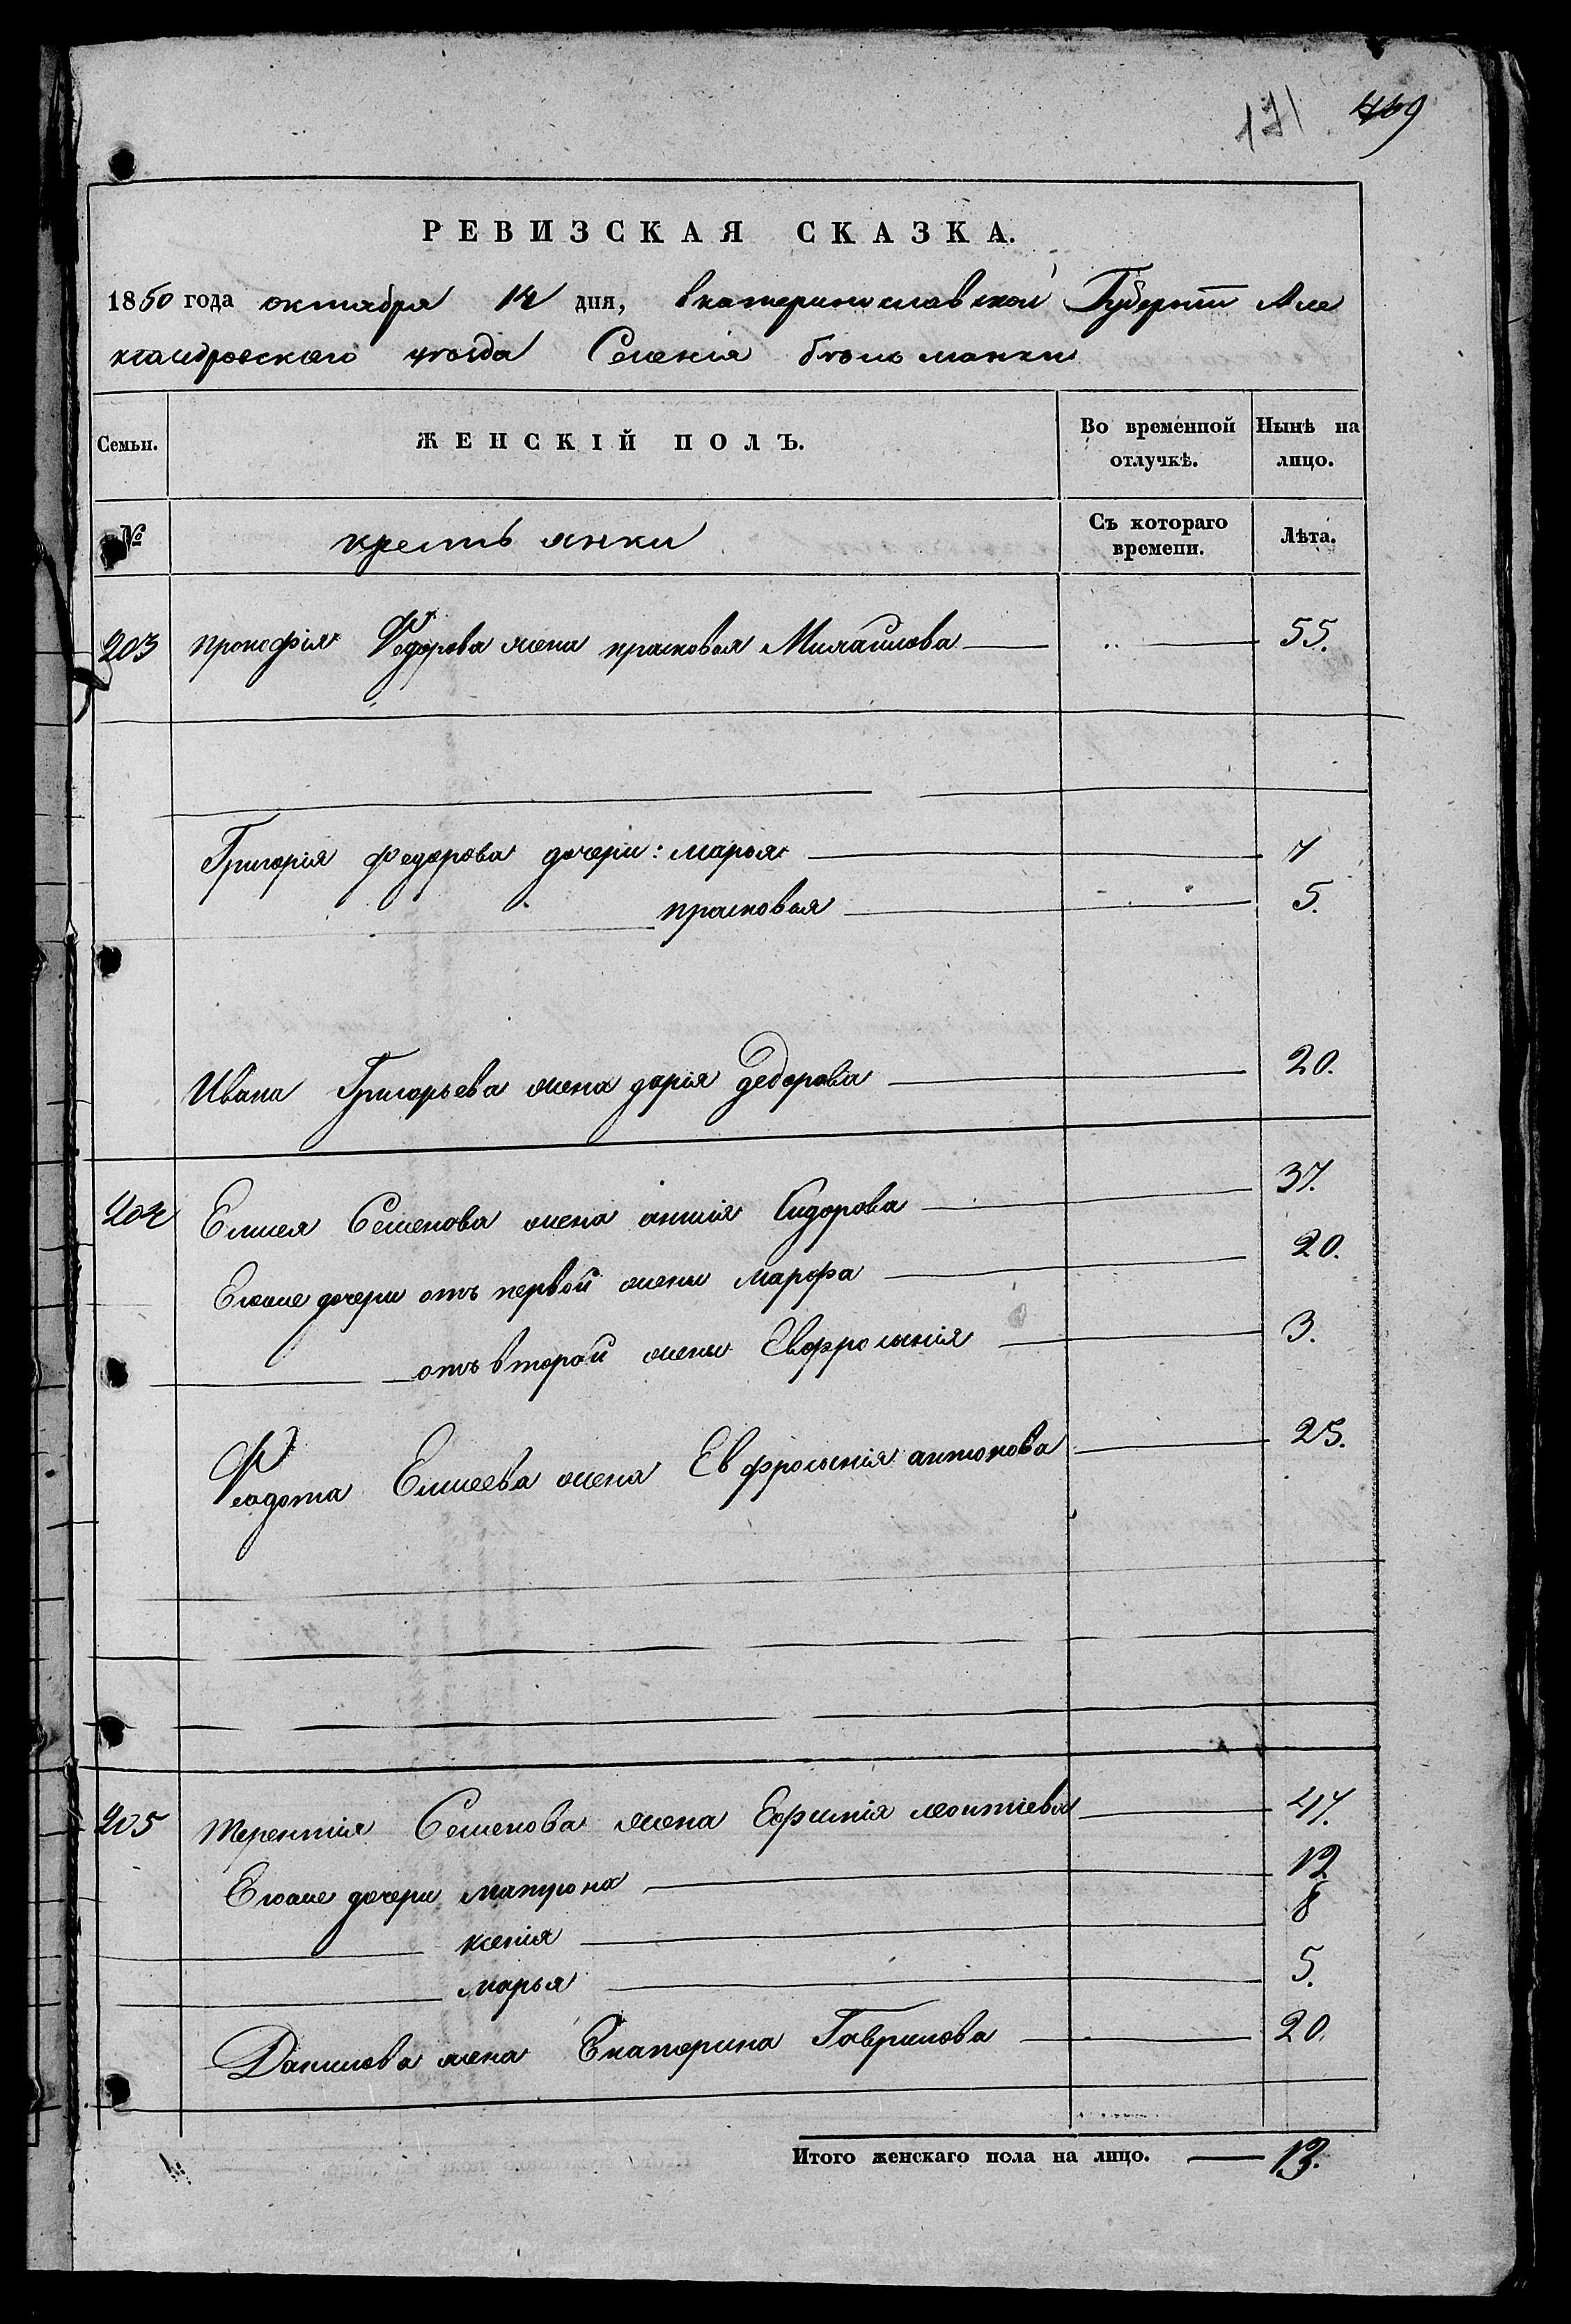 171 469
РЕВИЗСКАЯ СКАЗКА.
1850 года октября 14 дня, Екатеринославской Губерніи Але
ксандровскаго уѣзда Селенія бѣломанки
Семьи. ЖЕНСКІЙ ПОЛЪ. Во временной отлучкѣ. Нынѣ на лицо.
№ крестьянки Съ котораго времени. Лѣта.
203 прокофія Федорова жена прасковья Михайлова 55.
Григорія федорова дочери: марья 7
прасковья 5.
Ивана Григорьева жена дарія Федорова 20.
204 Елисея Семенова жена анна Сидорова 37.
Егоже дочери отъ первой жены Марфа 20.
отъ второй жены Евфросинія 3.
Феодота Елисеева жена Евфросинія антонова 25.
205 терентія Семенова жена Ефимія леонтіева 47.
Егоже дочери матрона 12
ксенія 8
марья 5.
Данилова жена Екатерина Гаврилова 20.
Итого женскаго пола на лицо. 13.